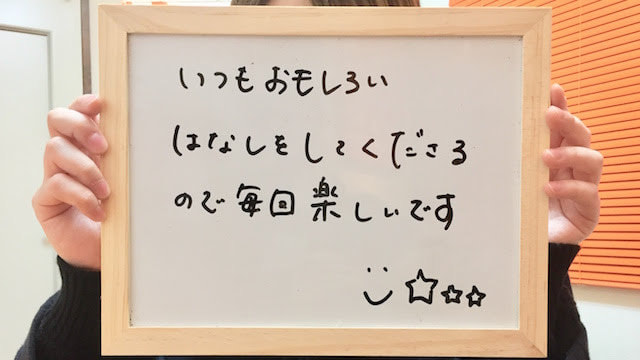 いつもおもしろい
はなしをしてくださる
ので毎回楽しいです